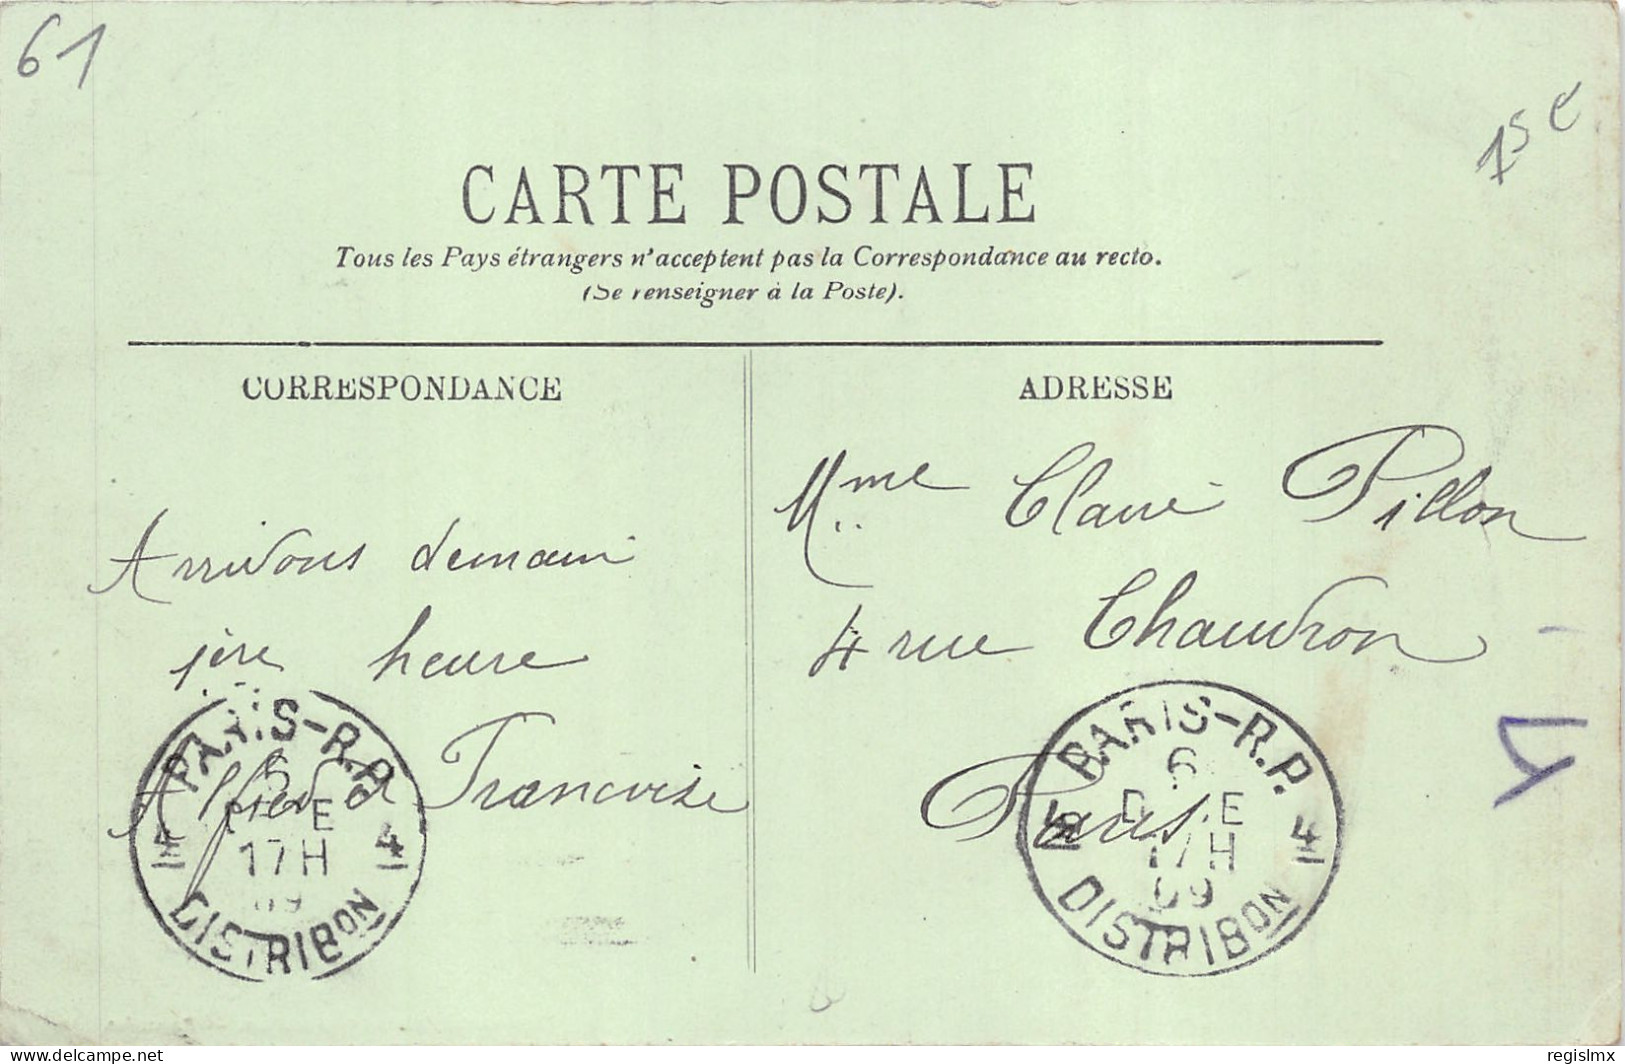 61
15 €
CARTE POSTALE
Tous les Pays étrangers n'acceptent pas la Correspondance au recto.
(Se renseigner à la Poste).
CORRESPONDANCE
Arrivons demain
1ère heure
Alfred Francoise
ADRESSE
Mme Claire Pillon
4 rue Chaudron
Paris
PARIS-R.P.
6
DE
17H
09
4 4
DISTRIBON
PARIS-R.P.
6
D E
17H
09
4 4
DISTRIBON
Delcampe.net
regislmx